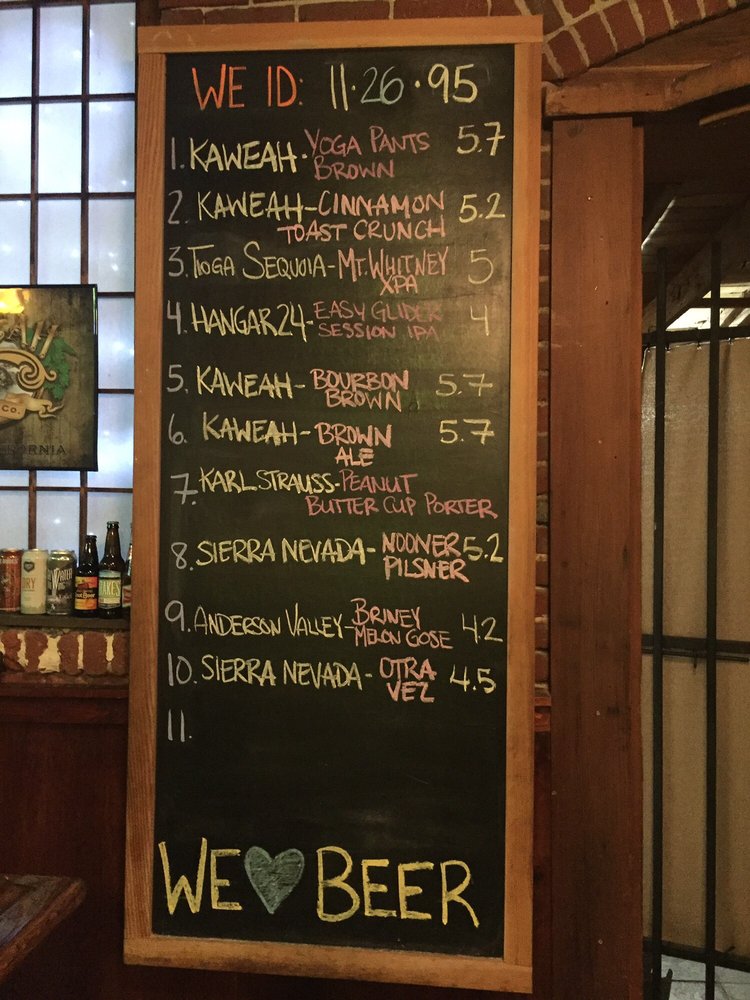 WE ID: 11·26·95
1. KAWEAH- YOGA PANTS 5.7
BROWN
2. KAWEAH-CINNAMON 5.2
TOAST CRUNCH
3. TIOGA SEQUOIA-MT. WHITNEY 5
XPA
4. HANGAR 24- EASY GLIDER 4
SESSION IPA
5. KAWEAH- BOURBON 5.7
BROWN
6. KAWEAH- BROWN 5.7
ALE
7. KARL STRAUSS-PEANUT
BUTTER CUP PORTER
8. SIERRA NEVADA- NOONER 5.2
PILSNER
9. ANDERSON VALLEY-BRINEY 4.2
MELON GOSE
10. SIERRA NEVADA- OTRA 4.5
VEZ
11.
WE ♥ BEER
CO.